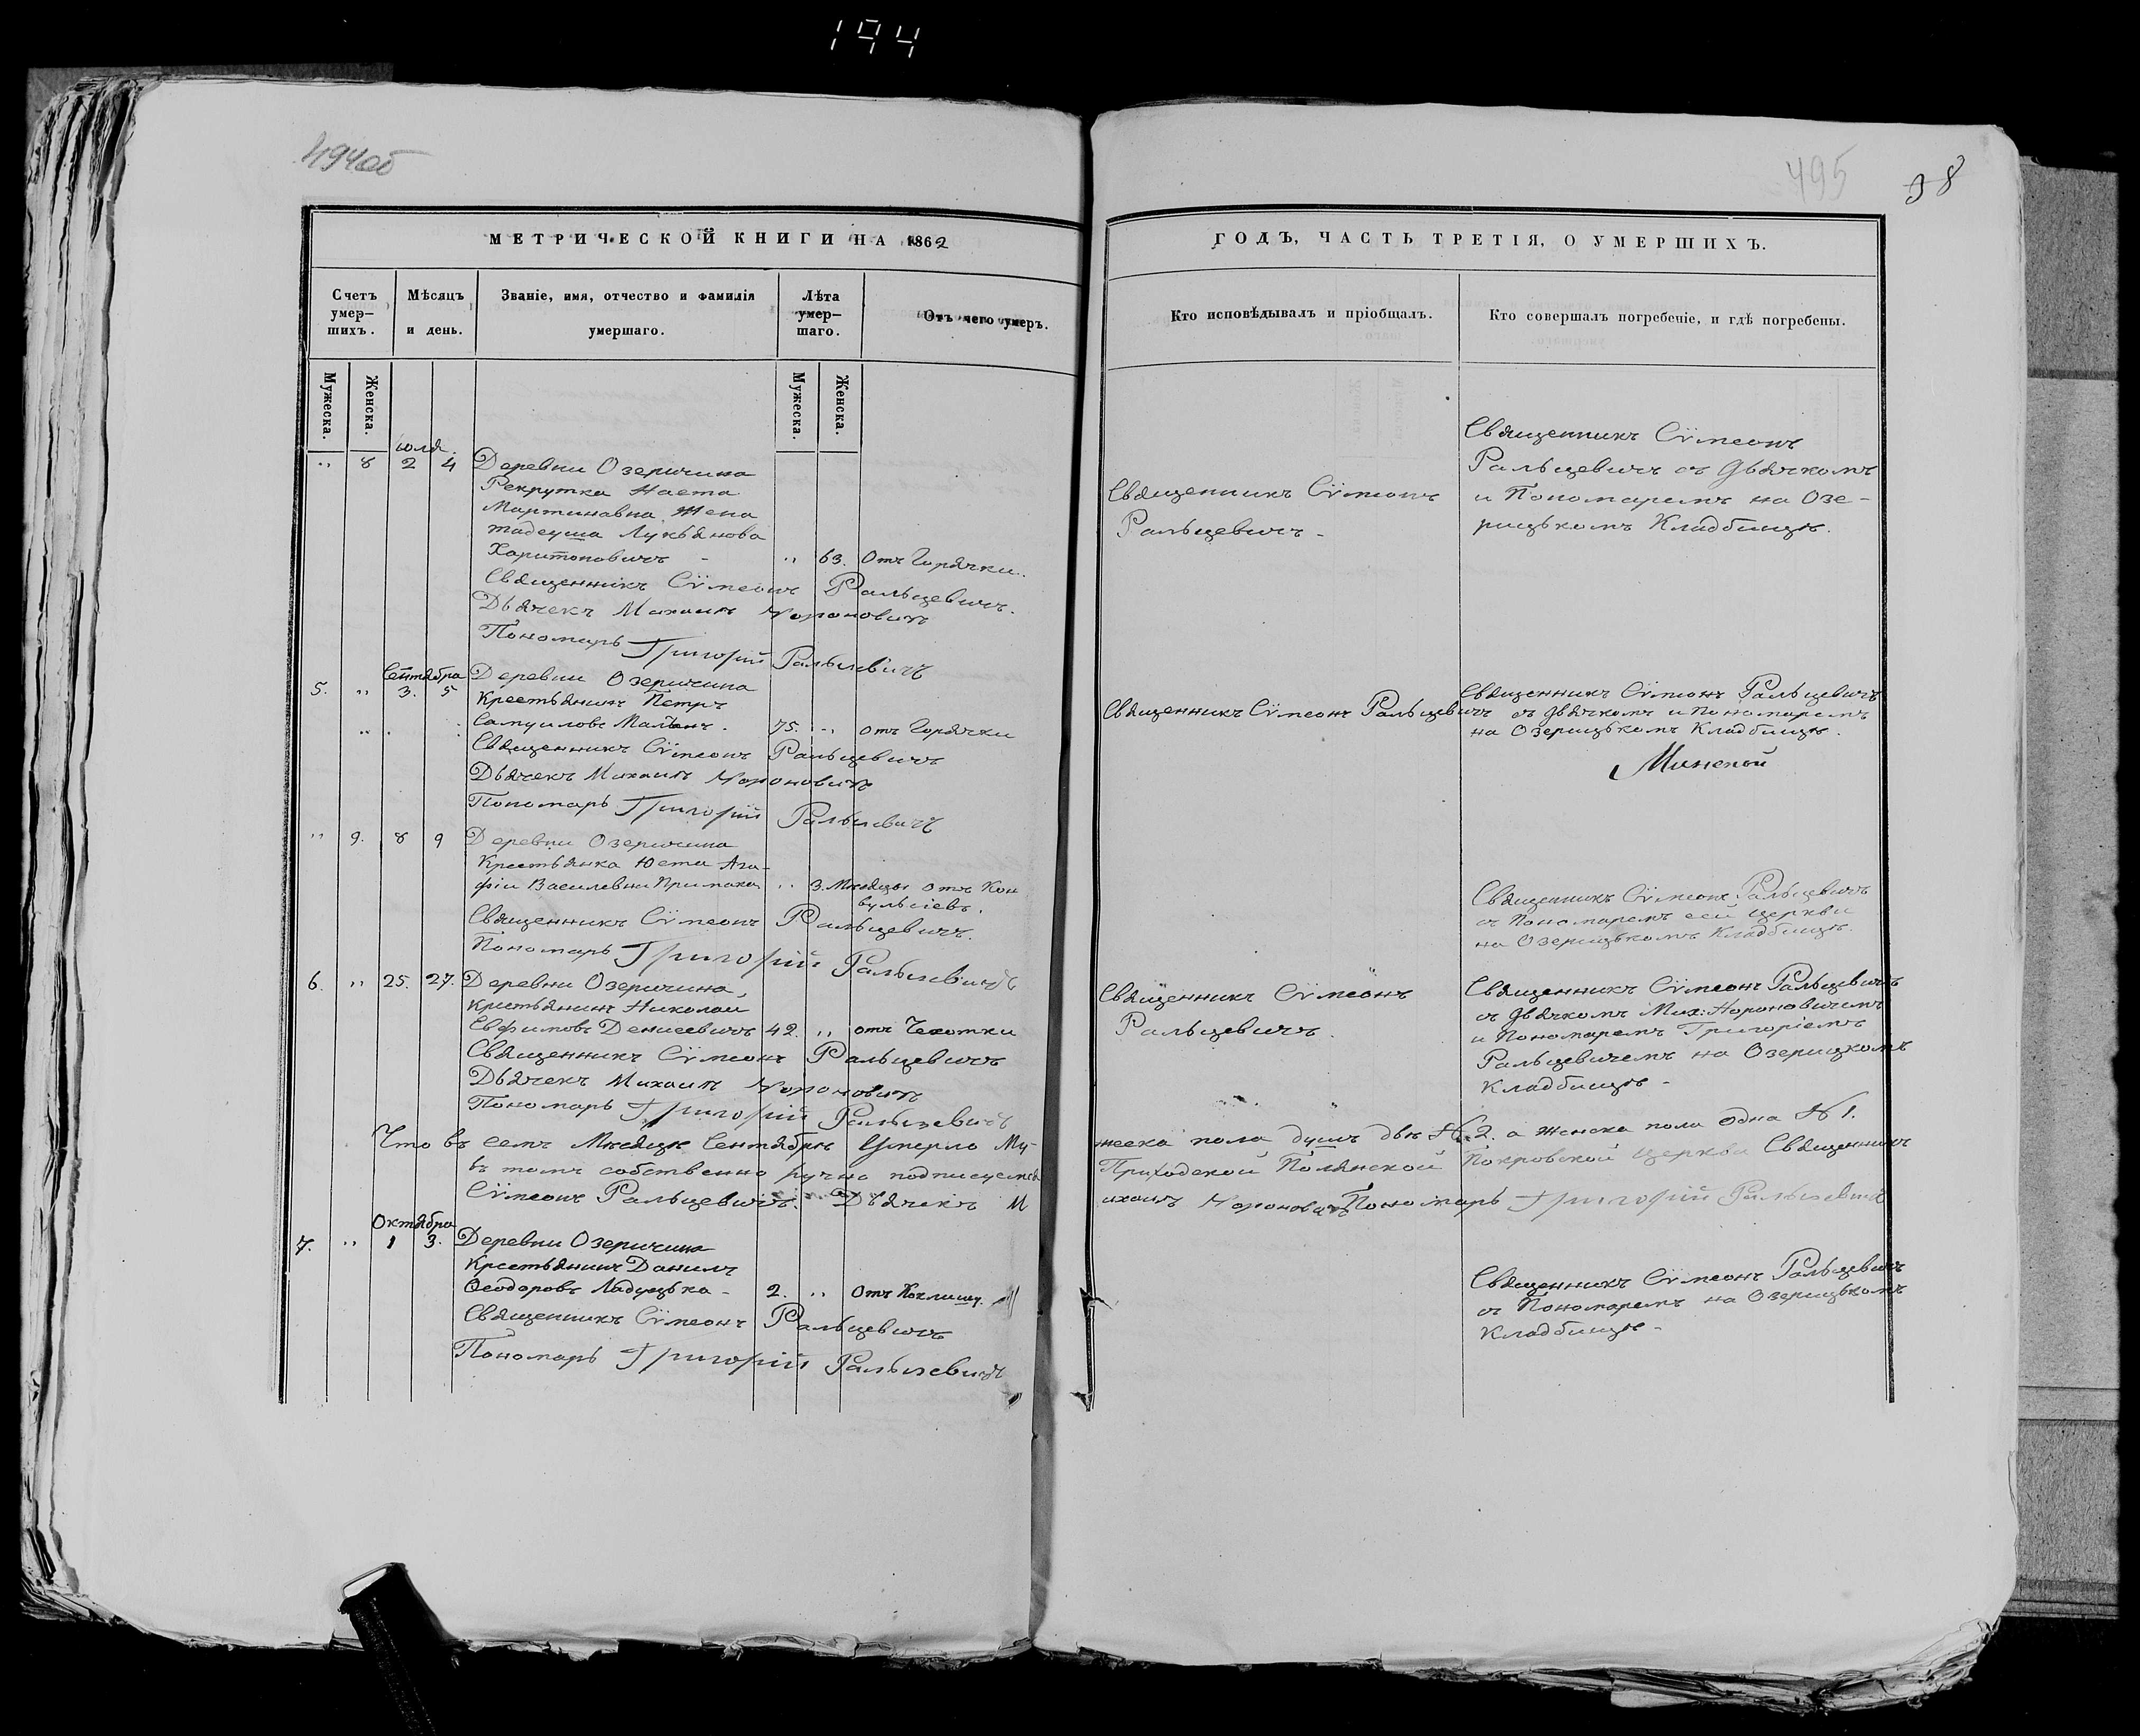 194
494об
495
98
МЕТРИЧЕСКОЙ КНИГИ НА 1862
ГОДЪ, ЧАСТЬ ТРЕТІЯ, О УМЕРШИХЪ.
Счетъ умер–шихъ.
Мѣсяцъ и день.
Званіе, имя, отчество и фамилія умершаго.
Лѣта умер–шаго.
Отъ чего умеръ.
Кто исповѣдывалъ и пріобщалъ.
Кто совершалъ погребеніе, и гдѣ погребены.
Мужеска.
Женска.
Мужеска.
Женска.
Юля
" 8 2 4 Деревни Озеричина
Рекрутка Наста
Мартинавна Жена
Тадеуша Лукьянова
Харитоновичъ - " 63. Отъ Горячки.
Священникъ Сѵмеонъ Ральцевичъ.
Дьячекъ Михаилъ Нороновичъ
Пономарь Григорій Ральцевичъ
Священникъ Сѵмеонъ
Ральцевичъ -
Священникъ Сѵмеонъ
Ральцевичъ съ Дьячкомъ
и Пономаремъ на Озе-
рицькомъ Кладбищѣ.
Сентября
5. " 3. 5 Деревни Озеричина
Крестьянинъ Петръ
Самуиловъ . 75. " отъ Горячки
Священникъ Сѵмеонъ Ральцевичъ
Дьячекъ Михаилъ Нороновичъ
Пономарь Григорій Ральцевичъ
Священникъ Сѵмеонъ Ральцевичъ
Священникъ Сѵмеонъ Ральцевичъ
съ Дьячкомъ и Пономаремъ
на Озерицькомъ Кладбищѣ.
" 9. 8 9 Деревни Озеричина
Крестьянка Юста Ага-
фіи Василевны Примака " 3. Мѣсяцы отъ Кон
вульсіевъ.
Священникъ Сѵмеонъ Ральцевичъ.
Пономарь Григорій Ральцевичъ
Священникъ Сѵмеонъ Ральцевичъ
съ Пономаремъ сей Церкви
на Озерицькомъ Кладбищѣ.
6. " 25. 27. Деревни Озеричина
Крестьянинъ Николай
Евфимовъ Денисевичъ 42. " отъ Чехотки
Священникъ Сѵмеонъ Ральцевичъ
Дьячекъ Михаилъ Нороновичъ
Пономарь Григорій Ральцевичъ
Священникъ Сѵмеонъ
Ральцевичъ.
Священникъ Сѵмеонъ Ральцевичъ
съ Дьячкомъ Мих: Нороновичемъ
и Пономаремъ Григоріемъ
Ральцевичемъ на Озерицкомъ
Кладбищѣ -
Что въ семъ Мѣсяцѣ Сентябрѣ Умерло Му-жеска пола душъ двѣ №. 2. а Женска пола одна № 1.
въ томъ собственно ручно подписуемся Приходской Полянской Покровской Церкви Священникъ
Сѵмеонъ Ральцевичъ. Дьячекъ Михаилъ Нороновичъ Пономарь Григорій Ральцевичъ
Октября
7. " 1 3. Деревни Озеричина
Крестьянинъ Данилъ
Ѳеодоровъ Ладуцька - 2. " Отъ Коклишу.
Священникъ Сѵмеонъ Ральцевичъ
Пономарь Григорій Ральцевичъ
Священникъ Сѵмеонъ Ральцевичъ
съ Пономаремъ на Озерицькомъ
Кладбищѣ -